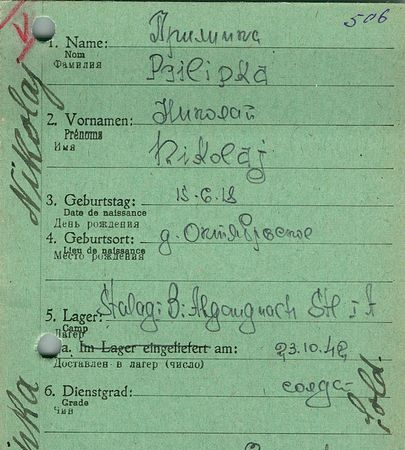 506
1. Name:
Nom
Фамилия
Прилипка
Prilipka
2. Vornamen:
Prénoms
Имя
Николай
Nikolaj
3. Geburtstag: 15.6.18
Date de naissance
День рождения
4. Geburtsort: д. Октябрьское
Lieu de naissance
Место рождения
5. Lager: Stalag I B. Abgang nach St. I A
Camp
Лагерь
a. Im Lager eingeliefert am: 23.10.42
Доставлен в лагерь (число)
6. Dienstgrad: солдат
Grade
Чин
Nikolaj
Sold.